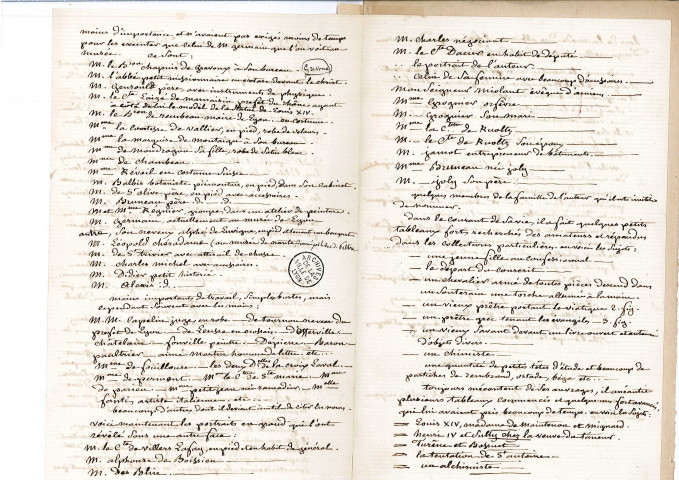 moins d'importance et n'avaient pas exigés moins de temps
pour les executer que celui de M. germain que l'on voit au
musée. ce sont
M. le Bon chapuis de gravoux à son bureau. (gravé)
M. l'abbé petit missionnaire en extase devant le christ.
M. père, avec instruments de physique
M. le Cte Laizé de préfet du rhône ayant
à côté de lui le model de la statue de Louis XIV.
M. le Bon de rambeau maire de Lyon. en costume.
Mme la Comtesse de Vallier, en pied, robe de velours.
Mme la marquise de montaigu à son bureau
Mme de mondragon sa fille, robe de satin blanc.
Mme de chambeau
Mme Révoil en costume suisse
M. Balbis botaniste piémontais, en pied, dans son cabinet.
M. de St olive père, en pied avec accessoires.
M. Bruneau père. d. d.
M. et Mme Régnier, groupés, dans un atelier de peinture.
M. Germain, actuellement au musée de Lyon
autre, son neveu, alphée de tenant un bouquet
M. Léopold chenadame
M. de St Trivier avec attirail de chasse.
M. charles michel avec accessoires.
M. Didier petit historié.
M. Alexis id.
moins importants de travail, simples bustes, mais
cependant souvent avec les mains.
M.M. Capelin juge, en robe de tournon neveu du
préfet de Lyon de Leusse en cuissois. D'offerville
chatelaire fonville peintre. Dépierre Baron
gaulthier aimé martin homme de lettre. etc.
Mme de fouillouse. les deux Dlles de la croix Laval.
Mme de permont. Mme la Ctesse de Ste marie Mme
de parieu Mme petitjean née ramadier. Melle
fanti, artiste italienne. etc.
beaucoup d'autres dont il devient inutil de citer les noms.
voici maintenant les portraits en grand qui l'ont
révélé sous une autre face:
M. le C. de villers Lafay, en pied et en habit de général.
M. alphonse de Boissieu
M. Des Blire
M. charles négociant
M. le Cte Dacier en habit de député
le portrait de l'auteur.
celui de sa femme avec beaucoup d'accessoires.
mon seigneur miolant évêque d'amiens
Mme grognier orfèvre
M. Grognier son mari
Mme la Ctesse de Ruolty
M. le Cte de Ruolty son époux
M. jamot entrepreneur de bâtiments.
Mme Bruneau née joly
M. joly son père
quelques membres de la famille de l'auteur qu'il est inutile
de nommer.
dans le courant de sa vie, il a fait quelques petits
tableaux fort recherchés des amateurs et répandus
dans les collections particulières. en voici les sujets.
— une jeune fille au confessionnal
— le départ du conscrit
— un chevalier armé de toutes pièces descend dans
un souterain une torche allumée à la main.
— un vieux prêtre portant le viatique 2. fig.
— un prêtre grec tenant les evangiles. 3. fig.
— un vieux savant devant un livre ouvert et entouré
d'objets divers.
— un chimiste
une quantité de petites têtes d'étude et beaucoup de
pastiches de rembrand, ostade, béga etc..
toujours mécontent de ses ouvrages, il a anéanti
plusieurs tableaux commencés et quelques uns fort avancés,
qui lui avaient pris beaucoup de temps. en voici les sujets.
— Louis XIV, madame de Maintenon et mignard.
— Henri IV et Sully chez la veuve du taneur.
— Turène et Bossuet
— la tentation de St antoine
— un alchimiste
ARCHIVES
VILLE DE
LYON